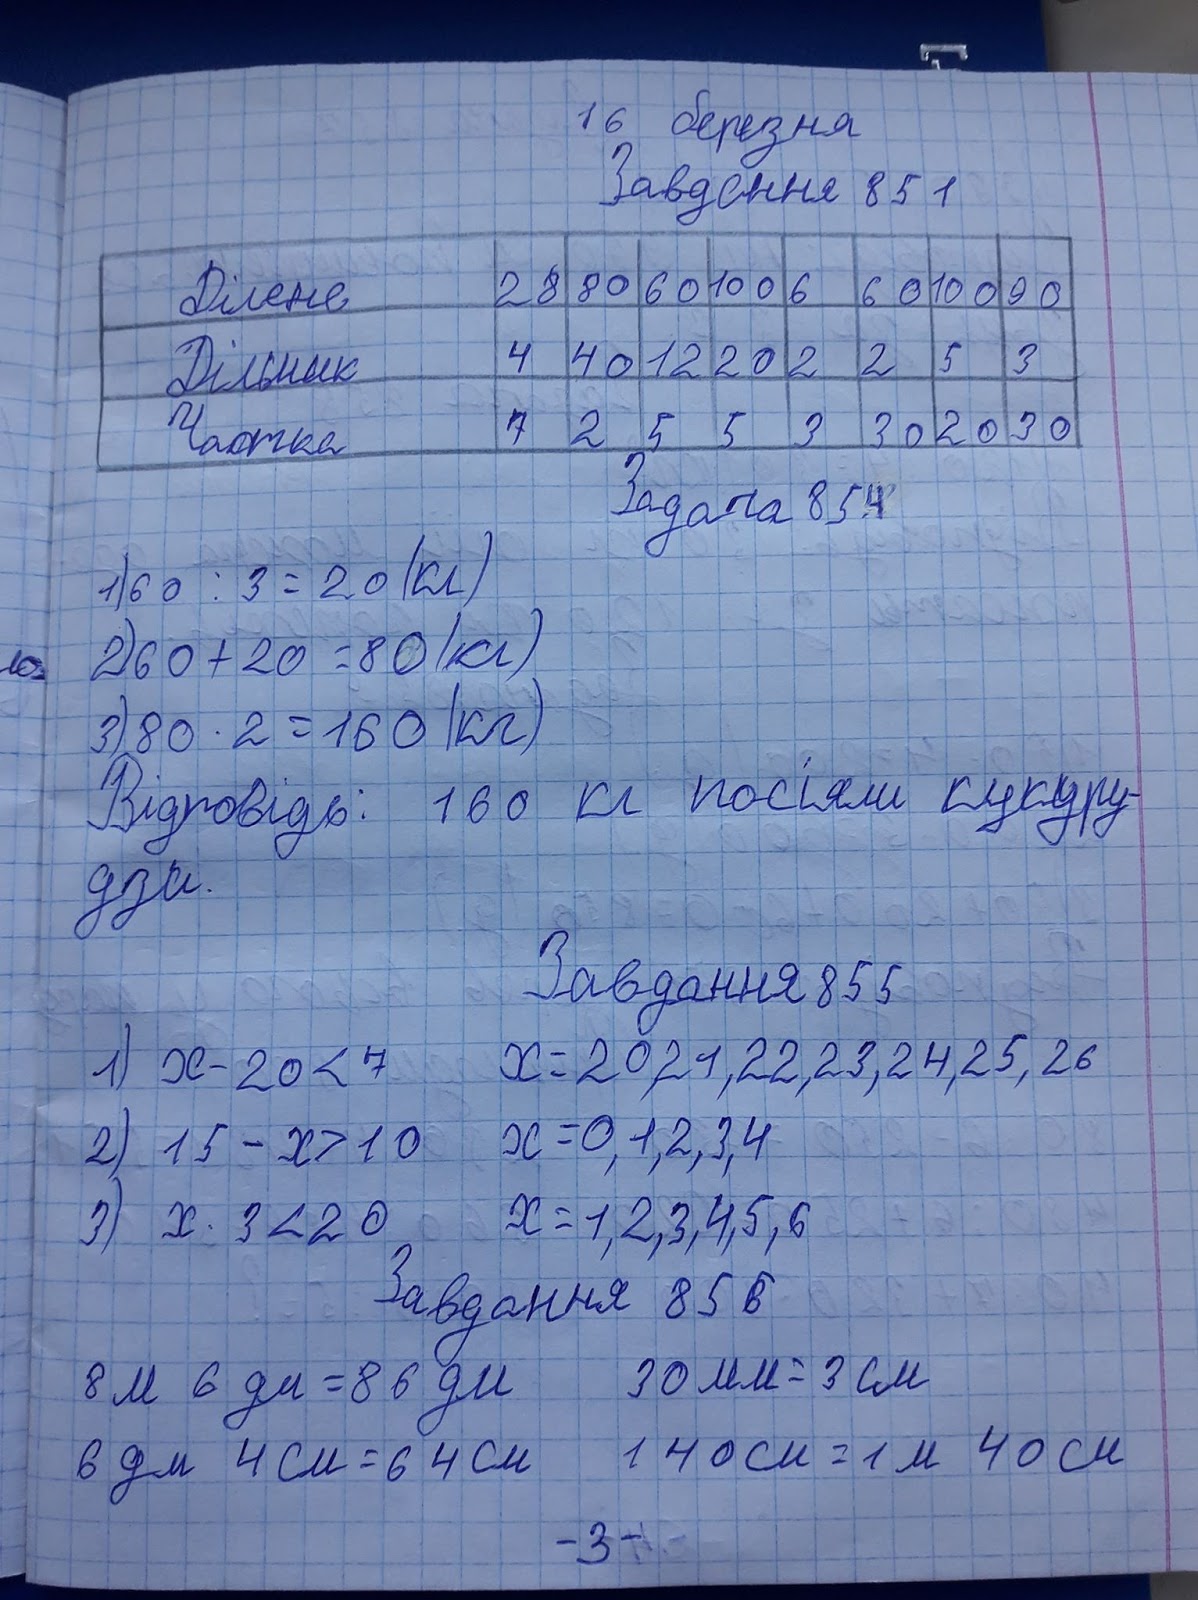 16 березня
Завдання 851
Ділене 28 80 60 100 6 60 100 90
Дільник 4 40 12 20 2 2 5 3
Частка 7 2 5 5 3 30 20 30
Задача 854
1) 60 : 3 = 20 (кг)
2) 60 + 20 = 80 (кг)
3) 80 · 2 = 160 (кг)
Відповідь: 160 кг посіяли кукуру-
дзи.
Завдання 855
1) x - 20 < 7 x = 20,21,22,23,24,25,26
2) 15 - x > 10 x = 0,1,2,3,4
3) x · 3 < 20 x = 1,2,3,4,5,6
Завдання 856
8 м 6 дм = 86 дм 30 мм = 3 см
6 дм 4 см = 64 см 140 см = 1 м 40 см
-3-